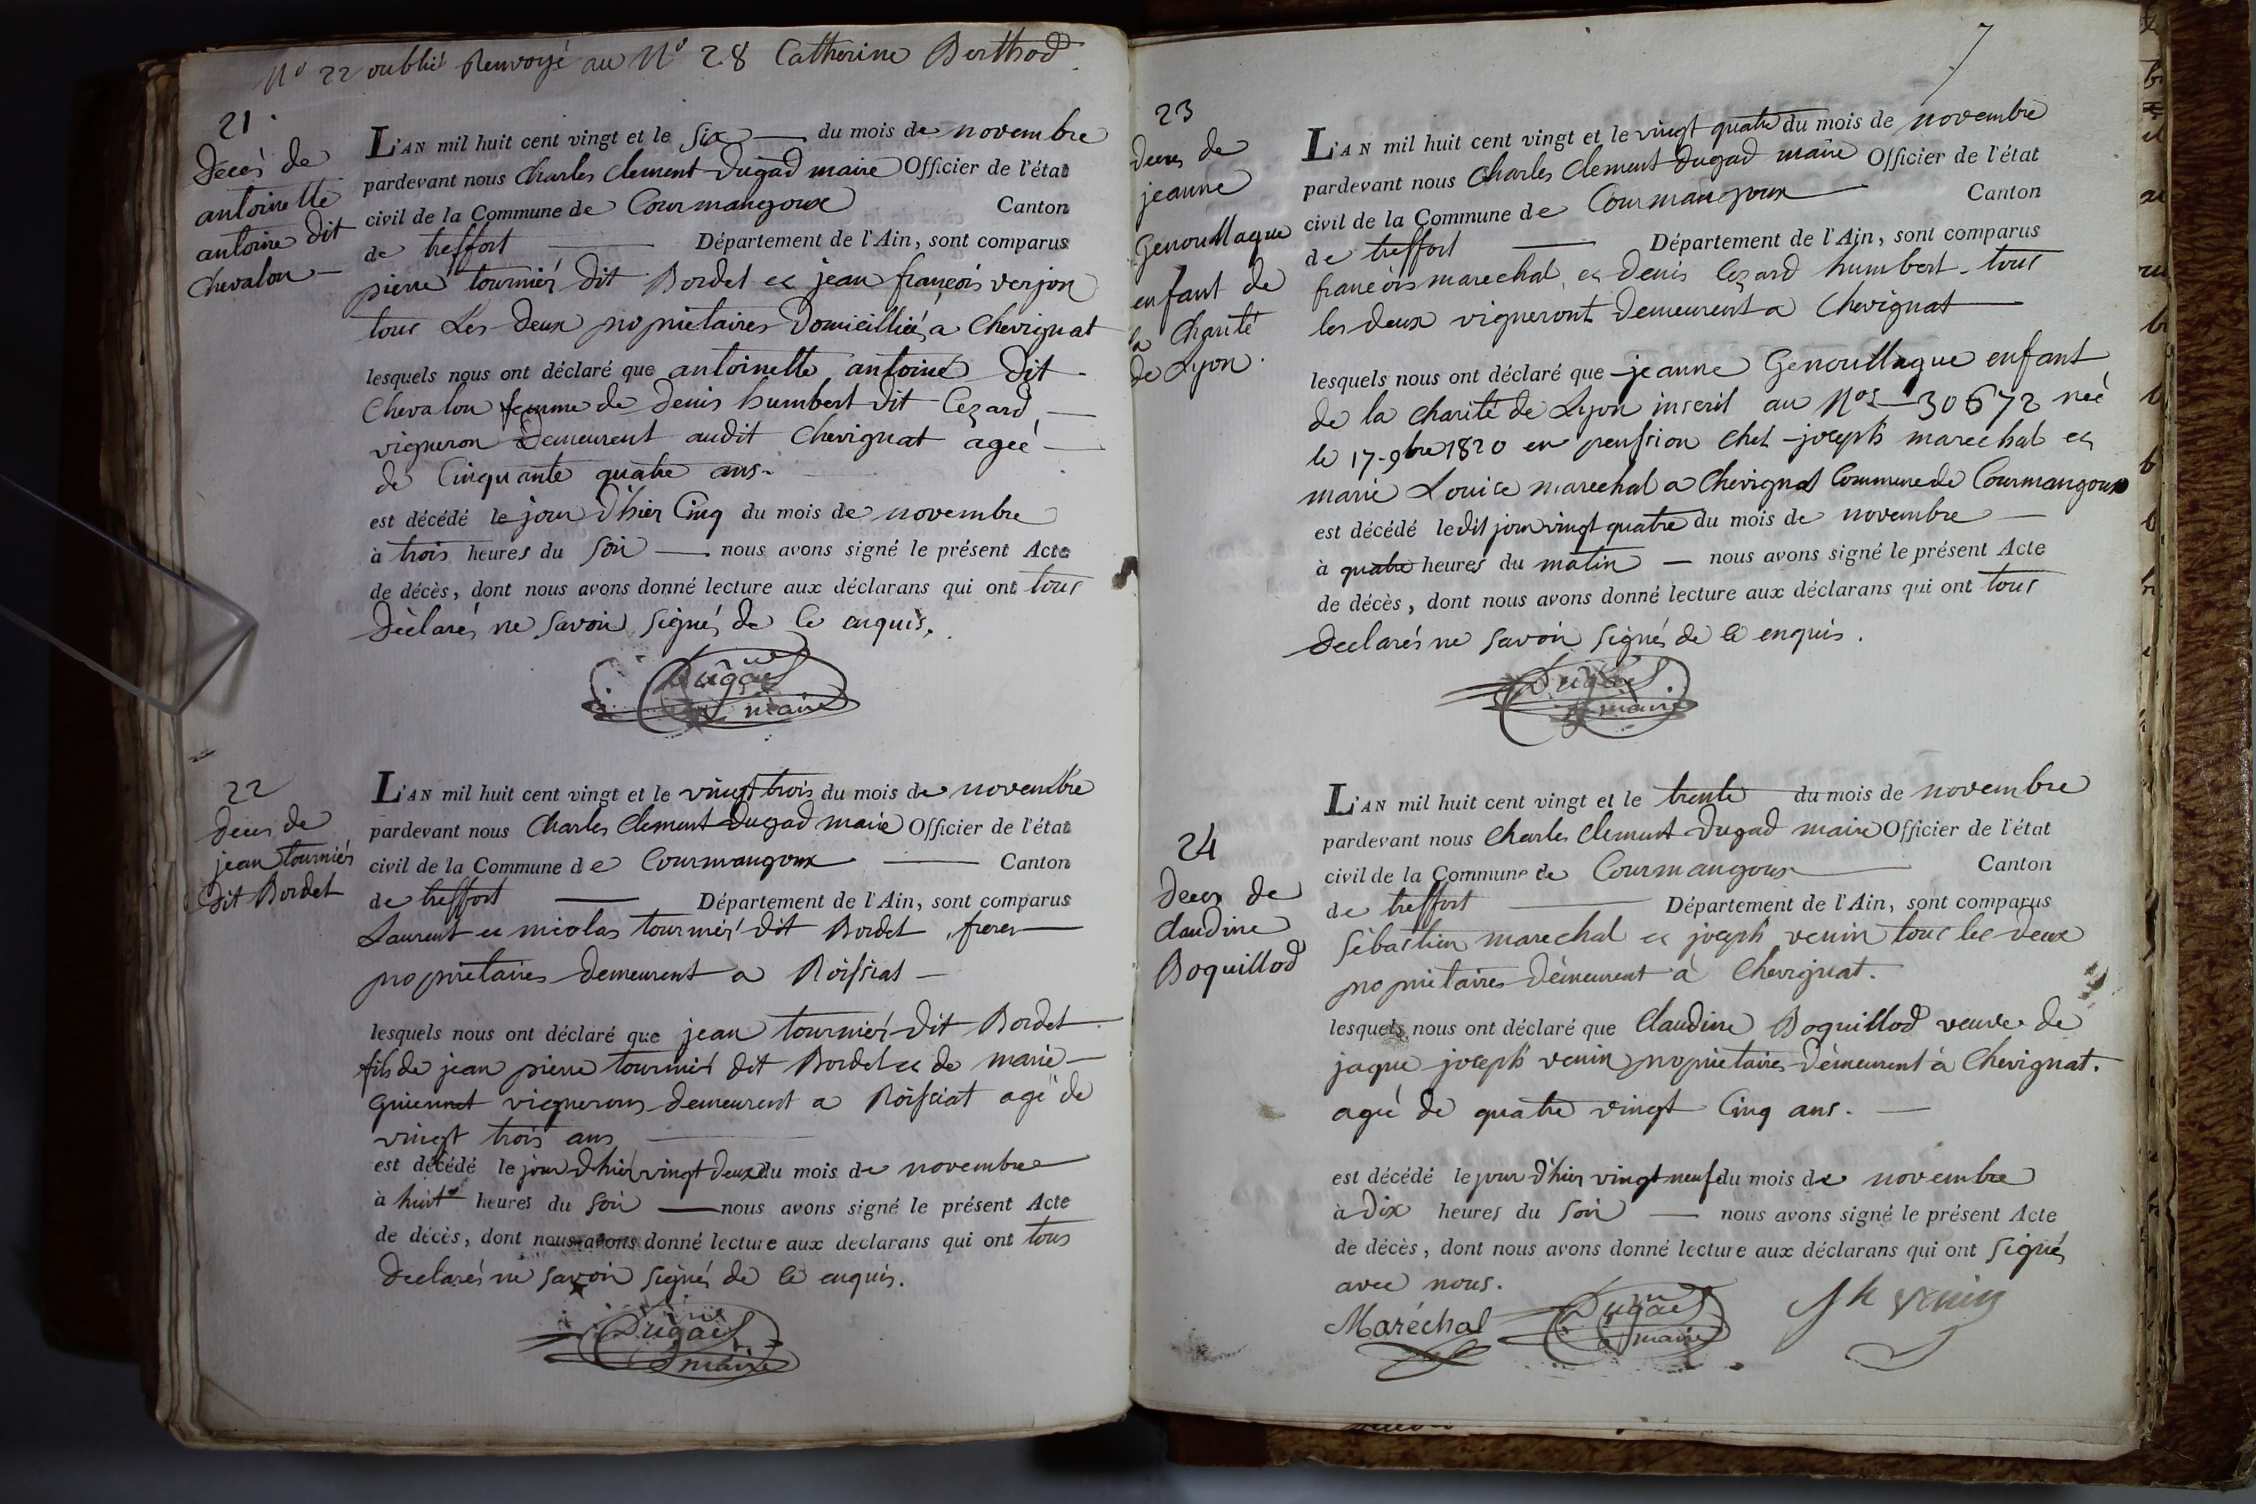 No 22 oublié Renvoyé au No 28 Catherine Berthod.
21.
Décès de
antoinette
antoine dit
Chevalon
L'AN mil huit cent vingt et le six du mois de novembre
pardevant nous Charles Clement Dugad maire Officier de l'état
civil de la Commune de Courmangoux Canton
de treffort Département de l'Ain, sont comparus
pierre tournier dit Bordet et jean françois verjon
tous Les deux propriétaires Domicilliés a Chevignat
lesquels nous ont déclaré que antoinette antoine dit
Chevalon femme de denis humbert dit Cezard
vigneron Demeurent audit Chevignat agée
de Cinquante quatre ans.
est décédé le jour d'hier Cinq du mois de novembre
à trois heures du soir nous avons signé le présent Acte
de décès, dont nous avons donné lecture aux déclarans qui ont tous
Déclarés ne savoir signés de Ce enquis.
Dugad
maire
22
deces de
jean tournier
dit Bordet
L'AN mil huit cent vingt et le vingt trois du mois de novembre
pardevant nous Charles Clement Dugad maire Officier de l'état
civil de la Commune de Courmangoux Canton
de treffort Département de l'Ain, sont comparus
Laurent et nicolas tournier dit Bordet, freres
propriétaires demeurent a Roissiat
lesquels nous ont déclaré que jean tournier dit Bordet
fils de jean pierre tournier dit Bordet et de marie
Guiennet vignerons demeurent a Roissiat agé de
vingt trois ans
est décédé le jour d'hier vingt deux du mois de novembre
à huit heures du soir nous avons signé le présent Acte
de décès, dont nous avons donné lecture aux declarans qui ont tous
Declarés ne savoir signés de Ce enquis.
Dugad
maire
7
23
Deces de
jeanne
Genoullaque
enfant de
la Charité
de Lyon.
L'AN mil huit cent vingt et le vingt quatre du mois de novembre
pardevant nous Charles Clement Dugad maire Officier de l'état
civil de la Commune de Courmangoux Canton
de treffort Département de l'Ain, sont comparus
françois marechal et denis Cezard humbert tous
les deux vigneront Demeurent a Chevignat
lesquels nous ont déclaré que jeanne Genoullaque enfant
de la charité de Lyon inscrit au Nos 30672 neé
le 17. 9bre 1820 en penssion chet joseph marechal et
marie Louise marechal a Chevignat Commune de Courmangoux
est décédé ledit jour vingt quatre du mois de novembre
à quatre heures du matin nous avons signé le présent Acte
de décès, dont nous avons donné lecture aux déclarans qui ont tous
Declarés ne savoir signés de Ce enquis.
Dugad
maire
24
Deces de
Claudine
Boquillod
L'AN mil huit cent vingt et le trente du mois de novembre
pardevant nous Charles Clement Dugad maire Officier de l'état
civil de la Commune de Courmangoux Canton
de treffort Département de l'Ain, sont comparus
Sébastien marechal et joseph venin tous les deux
propriétaires Demeurent à Chevignat.
lesquels nous ont déclaré que Claudine Boquillod veuve de
jaque joseph venin propriétaires Demeurent à Chevignat.
agée de quatre vingt Cinq ans.
est décédé le jour d'hier vingt neuf du mois de novembre
à Dix heures du soir nous avons signé le présent Acte
de décès, dont nous avons donné lecture aux déclarans qui ont signés
avec nous.
Maréchal
Dugad
maire
Jh venin